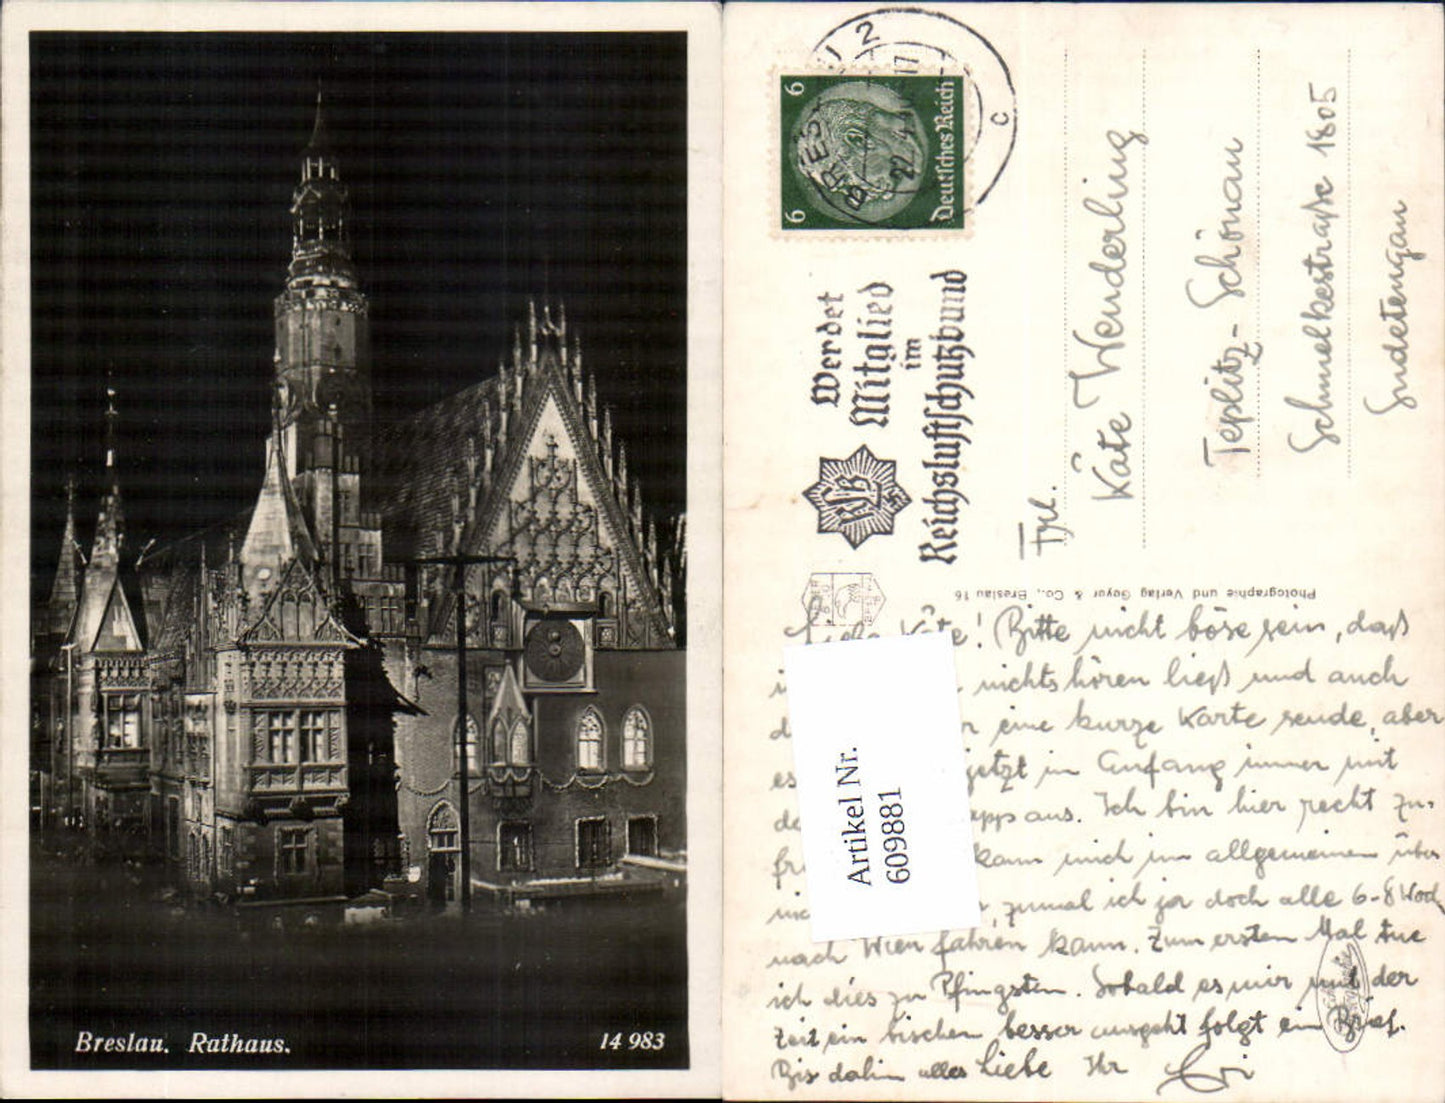 Breslau. Rathaus.
14 983
6
6
Deutsches Reich
BRESLAU 2
22.4.
17
c
Werdet
Mitglied
im
Reichsluftschutzbund
RLB
Frl.
Käte Wenderling
Teplitz-Schönau
Schmelkestraße 1805
Sudetengau
Photographie und Verlag Geyer & Co., Breslau 16
Artikel Nr.
609881
Liebe Käte! Bitte nicht böse sein, daß
nichts hören ließ und auch
eine kurze Karte sende, aber
es jetzt im Anfang immer mit
aus. Ich bin hier recht zu-
kann mich im allgemeinen über
zumal ich ja doch alle 6-8 Woch
nach Wien fahren kann. Zum ersten Mal tue
ich dies zu Pfingsten. Sobald es mir mit der
Zeit ein bischen besser ausgeht folgt ein Brief.
Bis dahin alles Liebe Ihr